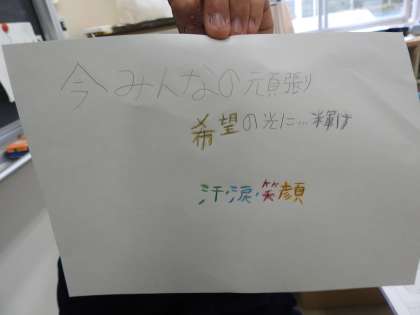 今みんなの頑張り
希望の光に…輝け
汗・涙・笑顔